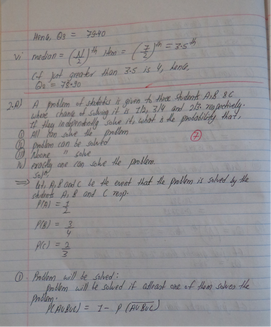 Hence, Q3 = 78.90
Vi median = (N/2)th item = (7/2)th = 3.5th
Cf just greater than 3.5 is 4, hence,
Q2 = 78.90
A problem of statistics is given to three students A, B & C
whose chance of solving it is 1/2, 3/4 and 2/3 respectively.
If they independently solve it, what is the probability that,
① All can solve the problem
② problem can be solved
③ None " solve
④ exactly one can solve the problem
Soln:
Let A, B and C be the event that the problem is solved by the
students A, B and C resp.
P(A) = 1/2
P(B) = 3/4
P(C) = 2/3
① Problem will be solved:
Problem will be solved if atleast one of them solves the
problem.
P(AUBUC) = 1 - P(AUBUC)